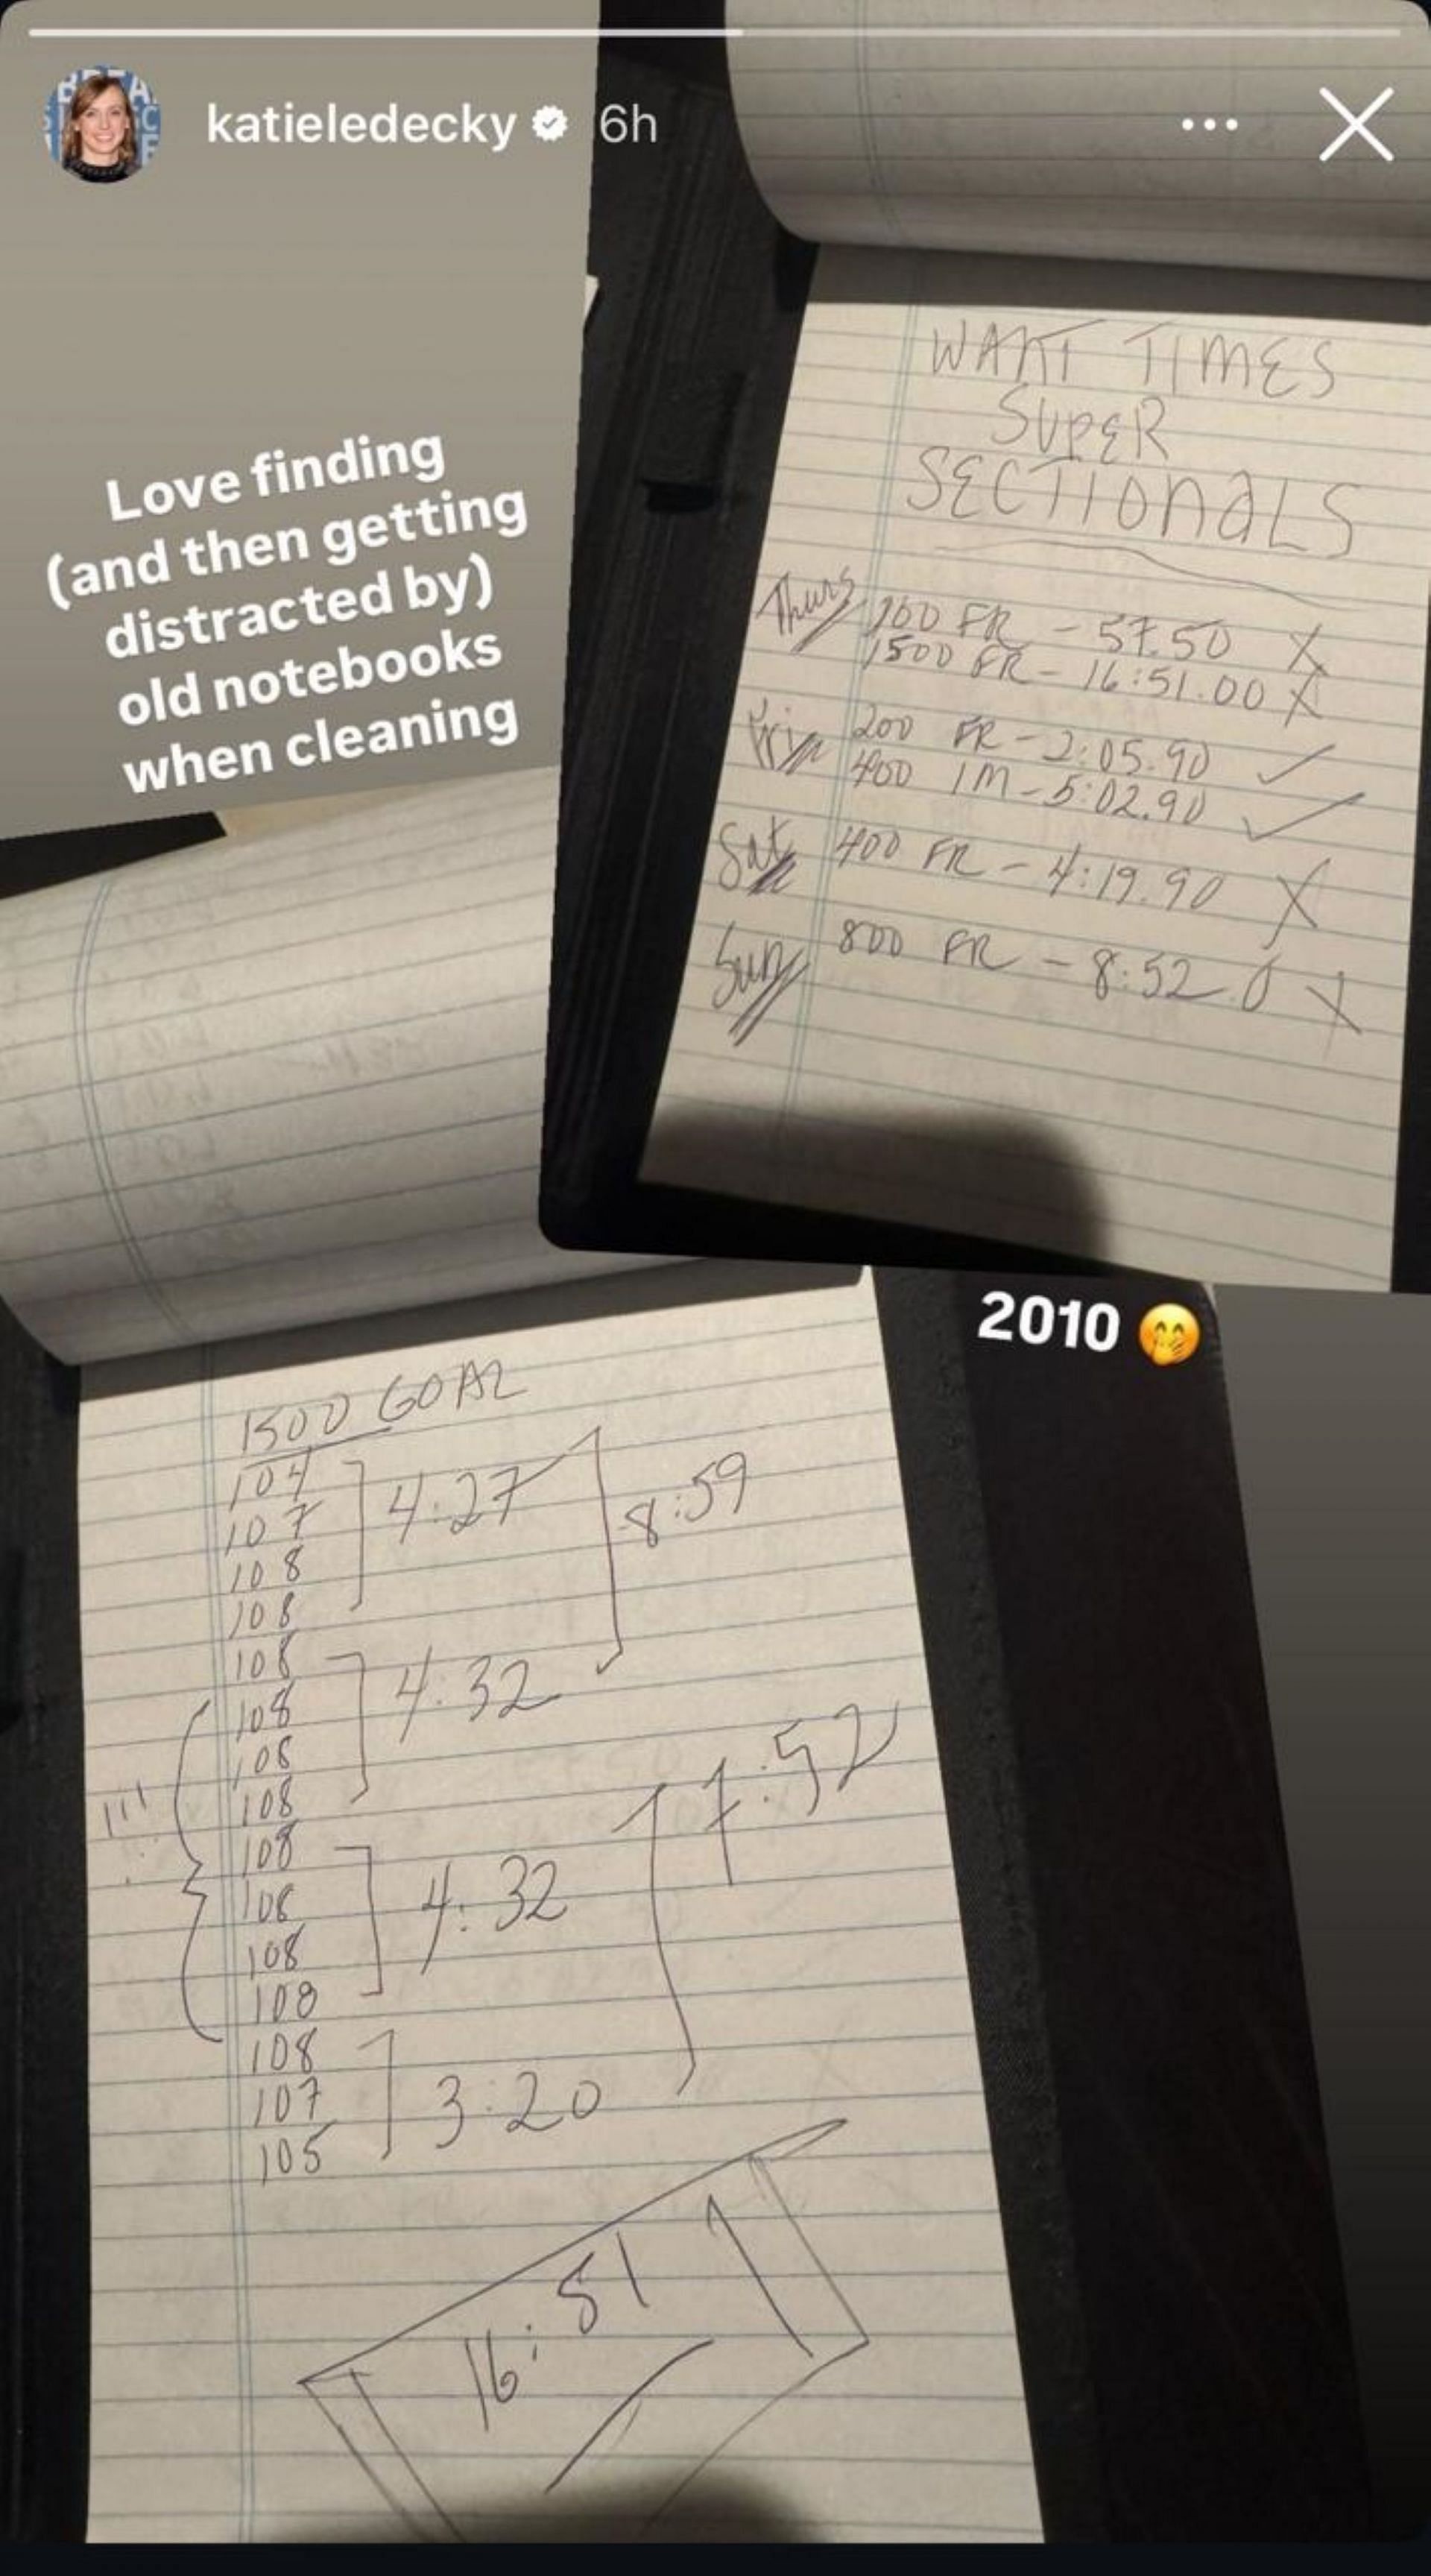 katieledecky 6h
Love finding
(and then getting
distracted by)
old notebooks
when cleaning
WANT TIMES
SUPER
SECTIONALS
Thurs 100 FR - 57.50 X
1500 FR - 16:51.00 X
Fri 200 FR - 2:05.90 ✓
400 IM - 5:02.90 ✓
Sat 400 FR - 4:19.90 X
Sun 800 FR - 8:52.0 X
2010 🤭
1500 GOAL
104
107
108
108
4:27
108
108
108
108
4:32
8:59
108
108
108
108
4:32
108
107
105
3:20
7:52
!!!
16:51